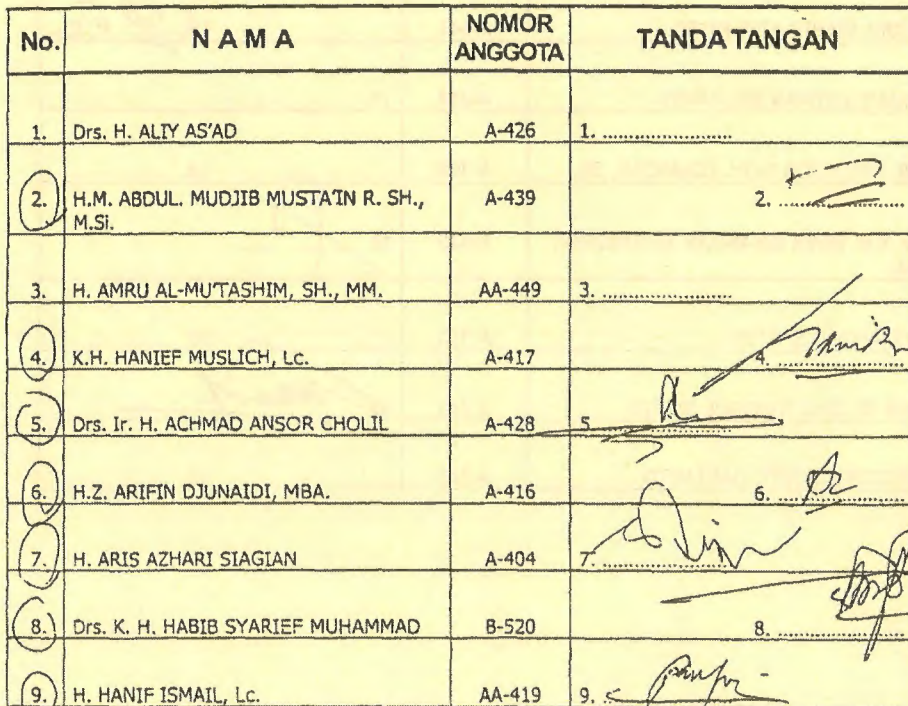 No. N A M A NOMOR ANGGOTA TANDA TANGAN
1. Drs. H. ALIY AS'AD A-426 1. ......................
2. H.M. ABDUL. MUDJIB MUSTA'IN R. SH., A-439 2. ......................
M.Si.
3. H. AMRU AL-MU'TASHIM, SH., MM. AA-449 3. ......................
4. K.H. HANIEF MUSLICH, Lc. A-417 4. ......................
5. Drs. Ir. H. ACHMAD ANSOR CHOLIL A-428 5. ......................
6. H.Z. ARIFIN DJUNAIDI, MBA. A-416 6. ......................
7. H. ARIS AZHARI SIAGIAN A-404 7. ......................
8. Drs. K. H. HABIB SYARIEF MUHAMMAD B-520 8. ......................
9. H. HANIF ISMAIL, Lc. AA-419 9. ......................